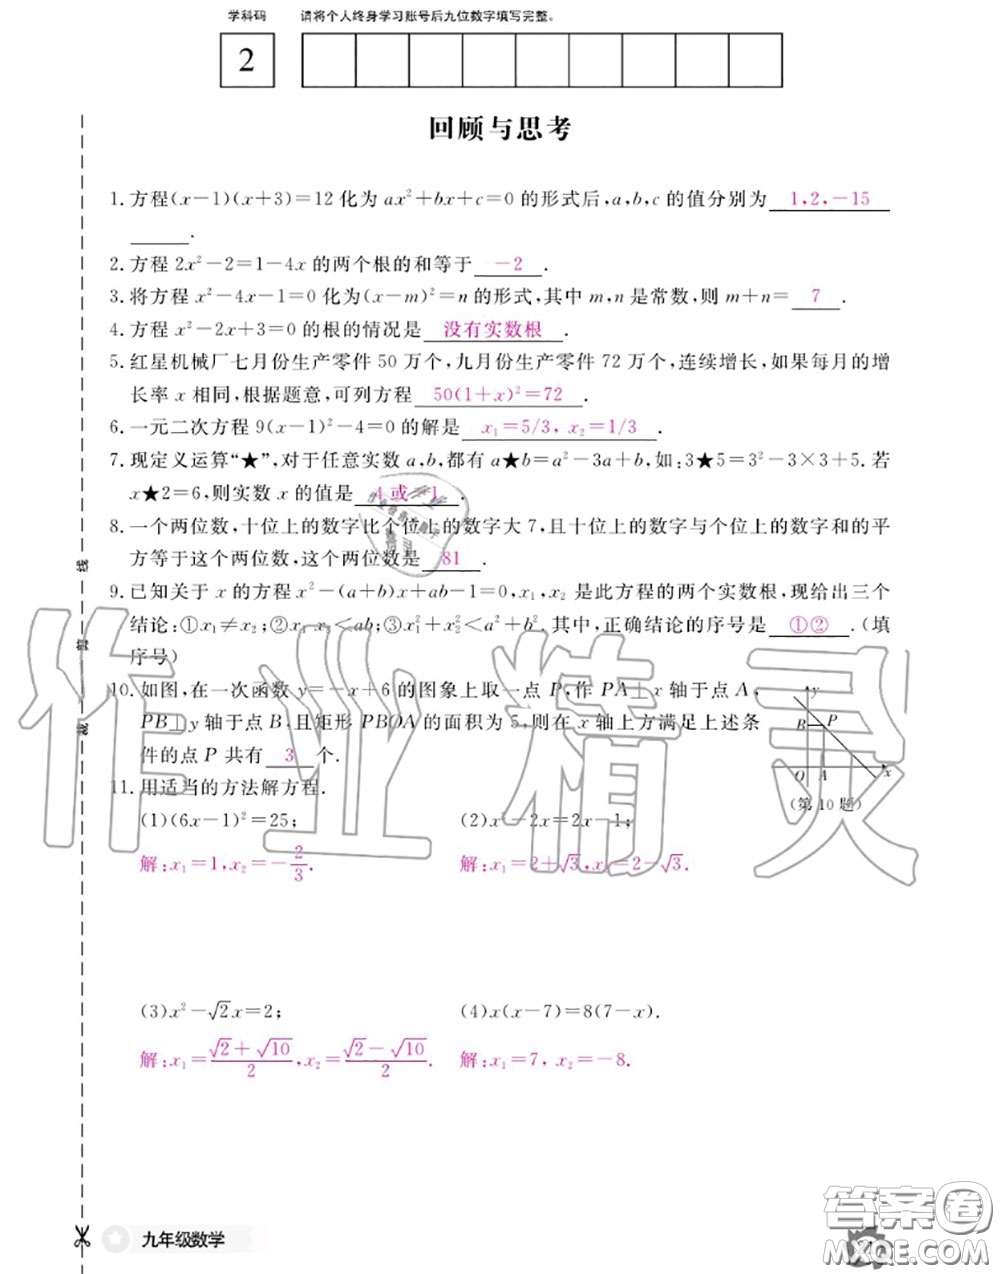 学科码 请将个人终身学习账号后九位数字填写完整。
2
回顾与思考
1.方程(x-1)(x+3)=12化为ax²+bx+c=0的形式后,a,b,c的值分别为 1,2,-15
.
2.方程2x²-2=1-4x的两个根的和等于 -2 .
3.将方程x²-4x-1=0化为(x-m)²=n的形式,其中m,n是常数,则m+n= 7 .
4.方程x²-2x+3=0的根的情况是 没有实数根 .
5.红星机械厂七月份生产零件50万个,九月份生产零件72万个,连续增长,如果每月的增
长率x相同,根据题意,可列方程 50(1+x)²=72 .
6.一元二次方程9(x-1)²-4=0的解是 x₁=5/3, x₂=1/3 .
7.现定义运算“★”,对于任意实数a,b,都有a★b=a²-3a+b,如:3★5=3²-3×3+5.若
x★2=6,则实数x的值是 4或-1 .
8.一个两位数,十位上的数字比个位上的数字大7,且十位上的数字与个位上的数字和的平
方等于这个两位数,这个两位数是 81 .
9.已知关于x的方程x²-(a+b)x+ab-1=0,x₁,x₂是此方程的两个实数根,现给出三个
结论:①x₁≠x₂;②x₁x₂<ab;③x₁²+x₂²<a²+b².其中,正确结论的序号是 ①② .(填
序号)
10.如图,在一次函数y=-x+6的图象上取一点P,作PA⊥x轴于点A,
PB⊥y轴于点B,且矩形PBOA的面积为5,则在x轴上方满足上述条
件的点P共有 3 个.
y
B P
O A x
(第10题)
11.用适当的方法解方程.
(1)(6x-1)²=25; (2)x²-2x=2x-1;
解:x₁=1,x₂=-2/3. 解:x₁=2+√3,x₂=2-√3.
(3)x²-√2x=2; (4)x(x-7)=8(7-x).
解:x₁=(√2+√10)/2,x₂=(√2-√10)/2. 解:x₁=7, x₂=-8.
裁 剪 线
作业精灵
九年级数学
答案圈
MXQE.COM